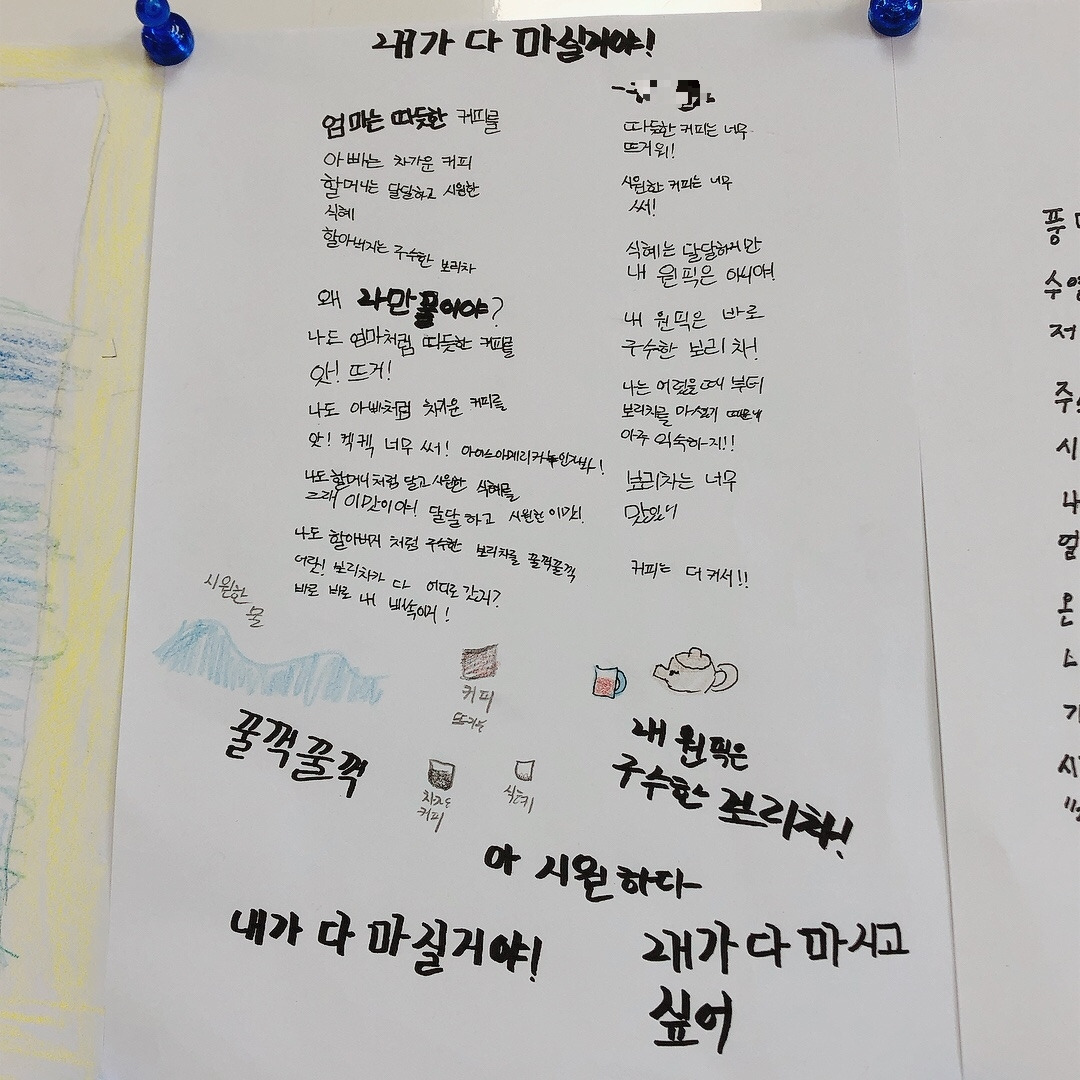 내가 다 마실거야!
엄마는 따듯한 커피를
아빠는 차가운 커피
할머니는 달달하고 시원한
식혜
할아버지는 구수한 보리차
왜 나만 물이야?
나도 엄마처럼 따듯한 커피를
앗! 뜨거!
나도 아빠처럼 차가운 커피를
앗! 켁켁 너무 써! 아이스아메리카노인가봐!
나도 할머니처럼 달고 시원한 식혜를
그래 이맛이야! 달달하고 시원한 이맛!
나도 할아버지 처럼 구수한 보리차를 꿀꺽꿀꺽
어랏! 보리차가 다 어디로 갔지?
바로 바로 내 뱃속이지!
따듯한 커피는 너무
뜨거워!
시원한 커피는 너무
써!
식혜는 달달하지만
내 원픽은 아니야!
내 원픽은 바로
구수한 보리차!
나는 어렸을때 부터
보리차를 마셨기 때문에
아주 익숙하지!!
보리차는 너무
맛있어
커피는 더 커서!!
시원한
물
커피
뜨거운
차가운
커피
식혜
꿀꺽꿀꺽
내 원픽은
구수한 보리차!
아 시원하다
내가 다 마실거야!
내가 다 마시고
싶어
풍
수영
저
주
시
나
얼
온
느
가
시